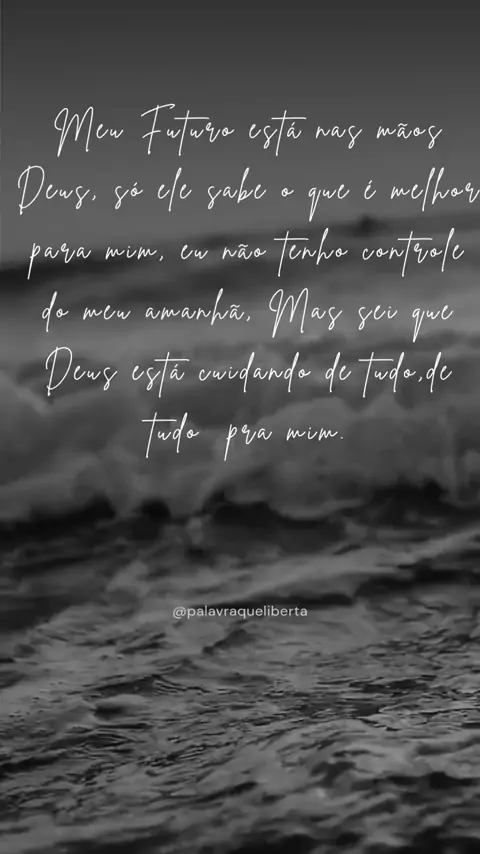 Meu Futuro está nas mãos
Deus, só ele sabe o que é melhor
para mim, eu não tenho controle
do meu amanhã, Mas sei que
Deus está cuidando de tudo,de
tudo pra mim.
@palavraqueliberta